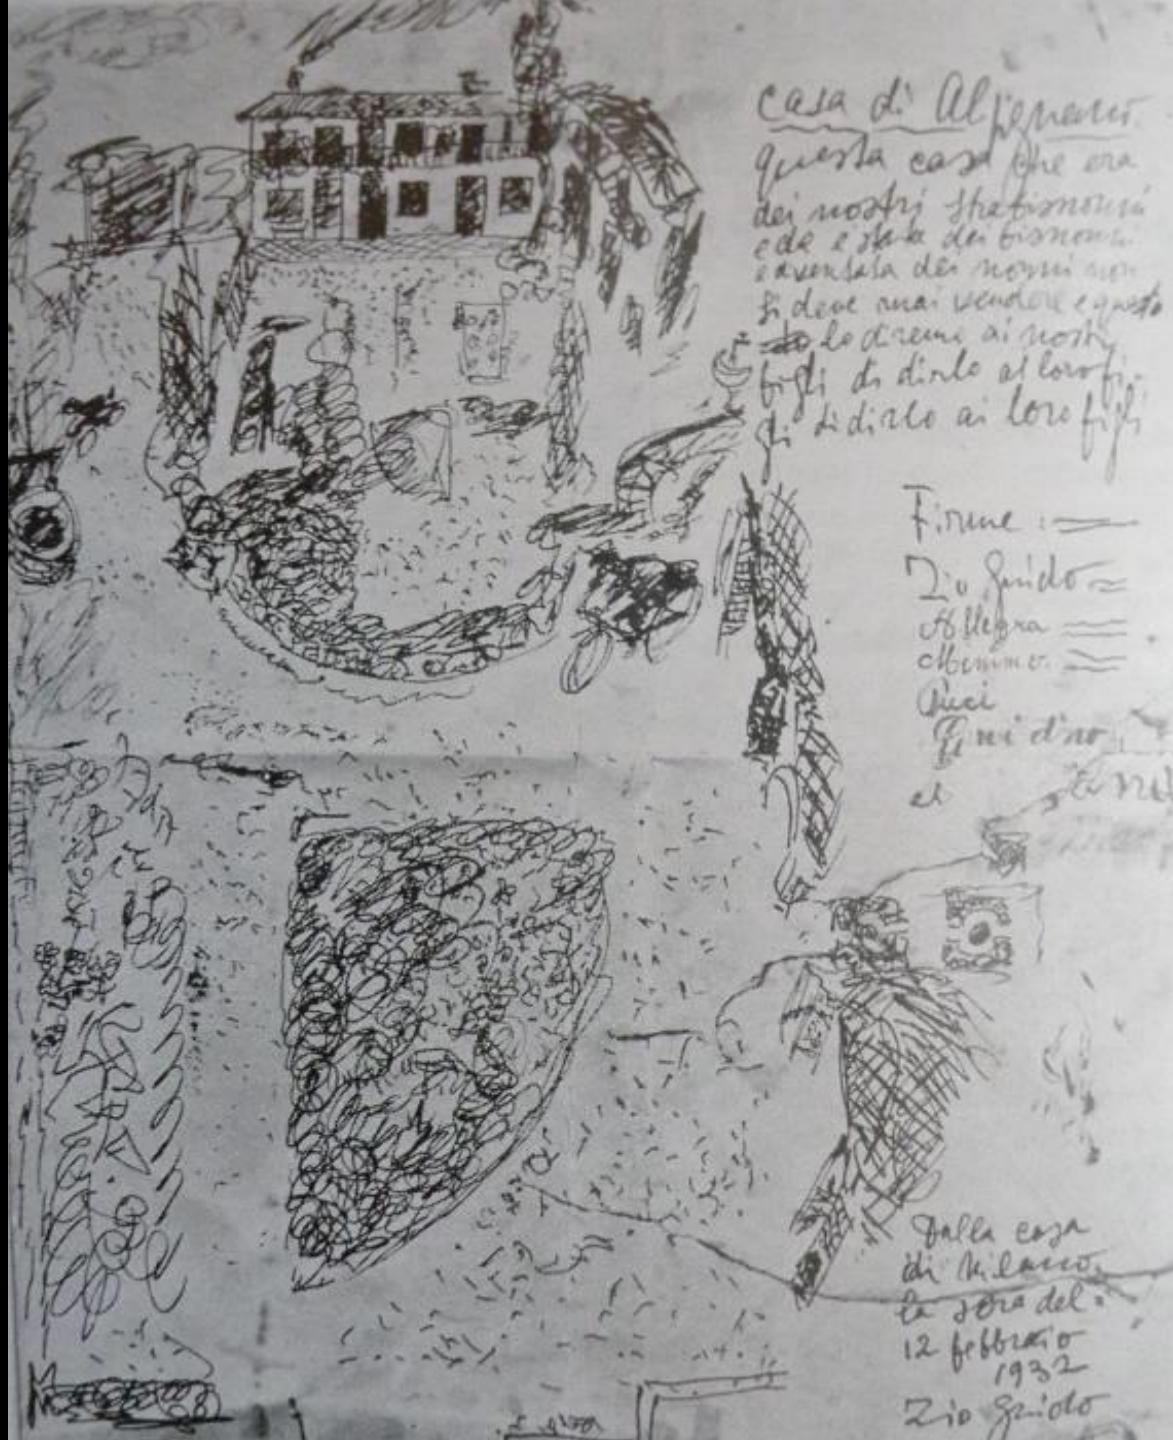 casa di Alpignano
questa casa che era
dei nostri strabisnonni
e da e stata dei bisnonni
e diventata dei nonni non
si deve mai vendere e questo
lo diremo ai nostri
figli di dirlo ai loro fi-
gli di dirlo ai loro figli
Firme:
Zio Guido
Allegra
Mimmo
Puci
et
Dalla casa
di Milano
la sera del
12 febbraio
1932
Zio Guido